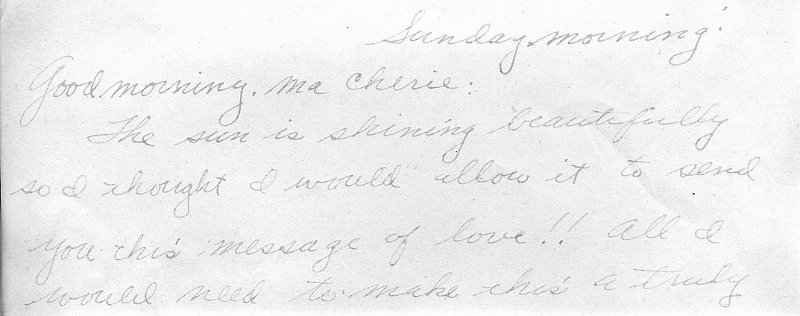 Sunday morning.
Good morning, ma cherie:
The sun is shining beautifully
so I thought I would allow it to send
you this message of love!! All I
would need to make this a truly